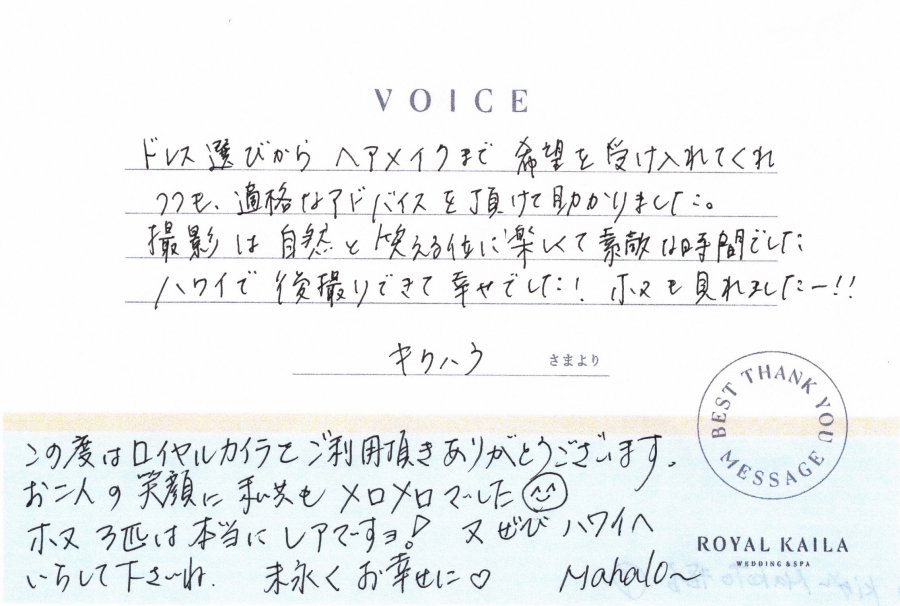 VOICE
ドレス選びから ヘアメイクまで 希望を受け入れてくれ
つつも、適格なアドバイスを頂けて助かりました。
撮影は自然と笑える位に楽しくて素敵な時間でした
ハワイで後撮りできて幸せでした! ホヌも見れましたー!!
キクハラ さまより
BEST THANK YOU MESSAGE
この度はロイヤルカイラをご利用頂きありがとうございます。
お二人の笑顔に私共もメロメロでした
ホヌ3匹は本当にレアですョ! 又ぜひハワイへ
いらして下さいね. 末永くお幸せに♡ Mahalo~
ROYAL KAILA
WEDDING & SPA